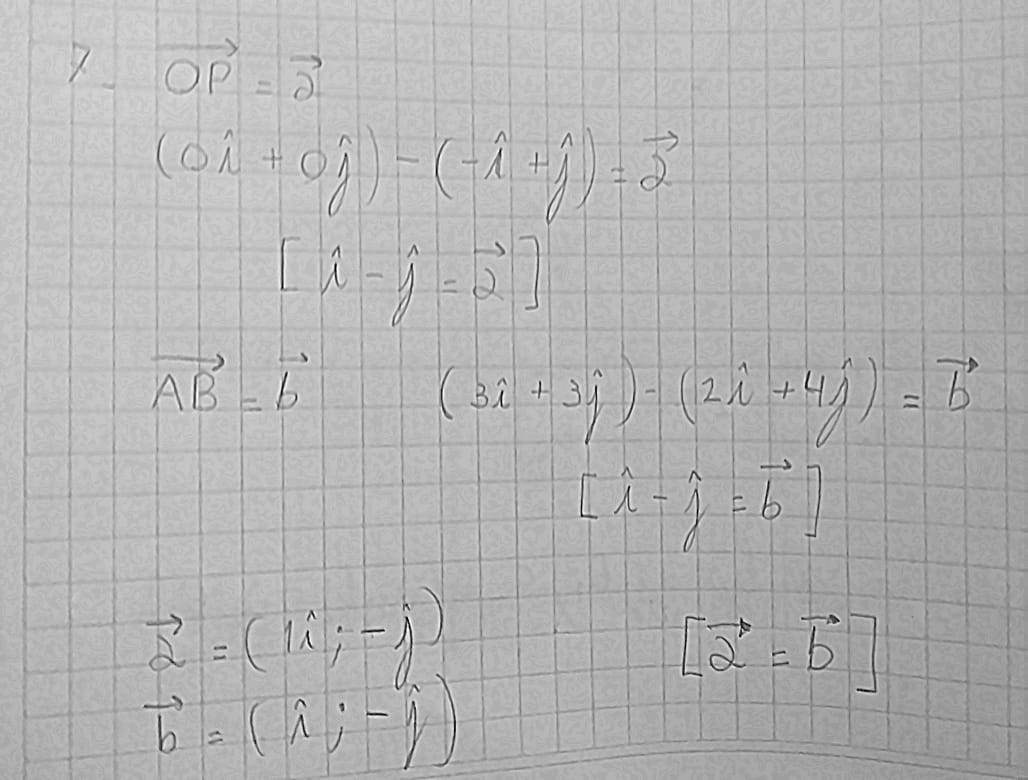 7. $\overrightarrow{OP} = \vec{a}$
$(0\hat{i} + 0\hat{j}) - (-\hat{i} + \hat{j}) = \vec{a}$
$[\hat{i} - \hat{j} = \vec{a}]$
$\overrightarrow{AB} = \vec{b}$ $(3\hat{i} + 3\hat{j}) - (2\hat{i} + 4\hat{j}) = \vec{b}$
$[\hat{i} - \hat{j} = \vec{b}]$
$\vec{a} = (1\hat{i}; -\hat{j})$ $[\vec{a} = \vec{b}]$
$\vec{b} = (\hat{i}; -\hat{j})$